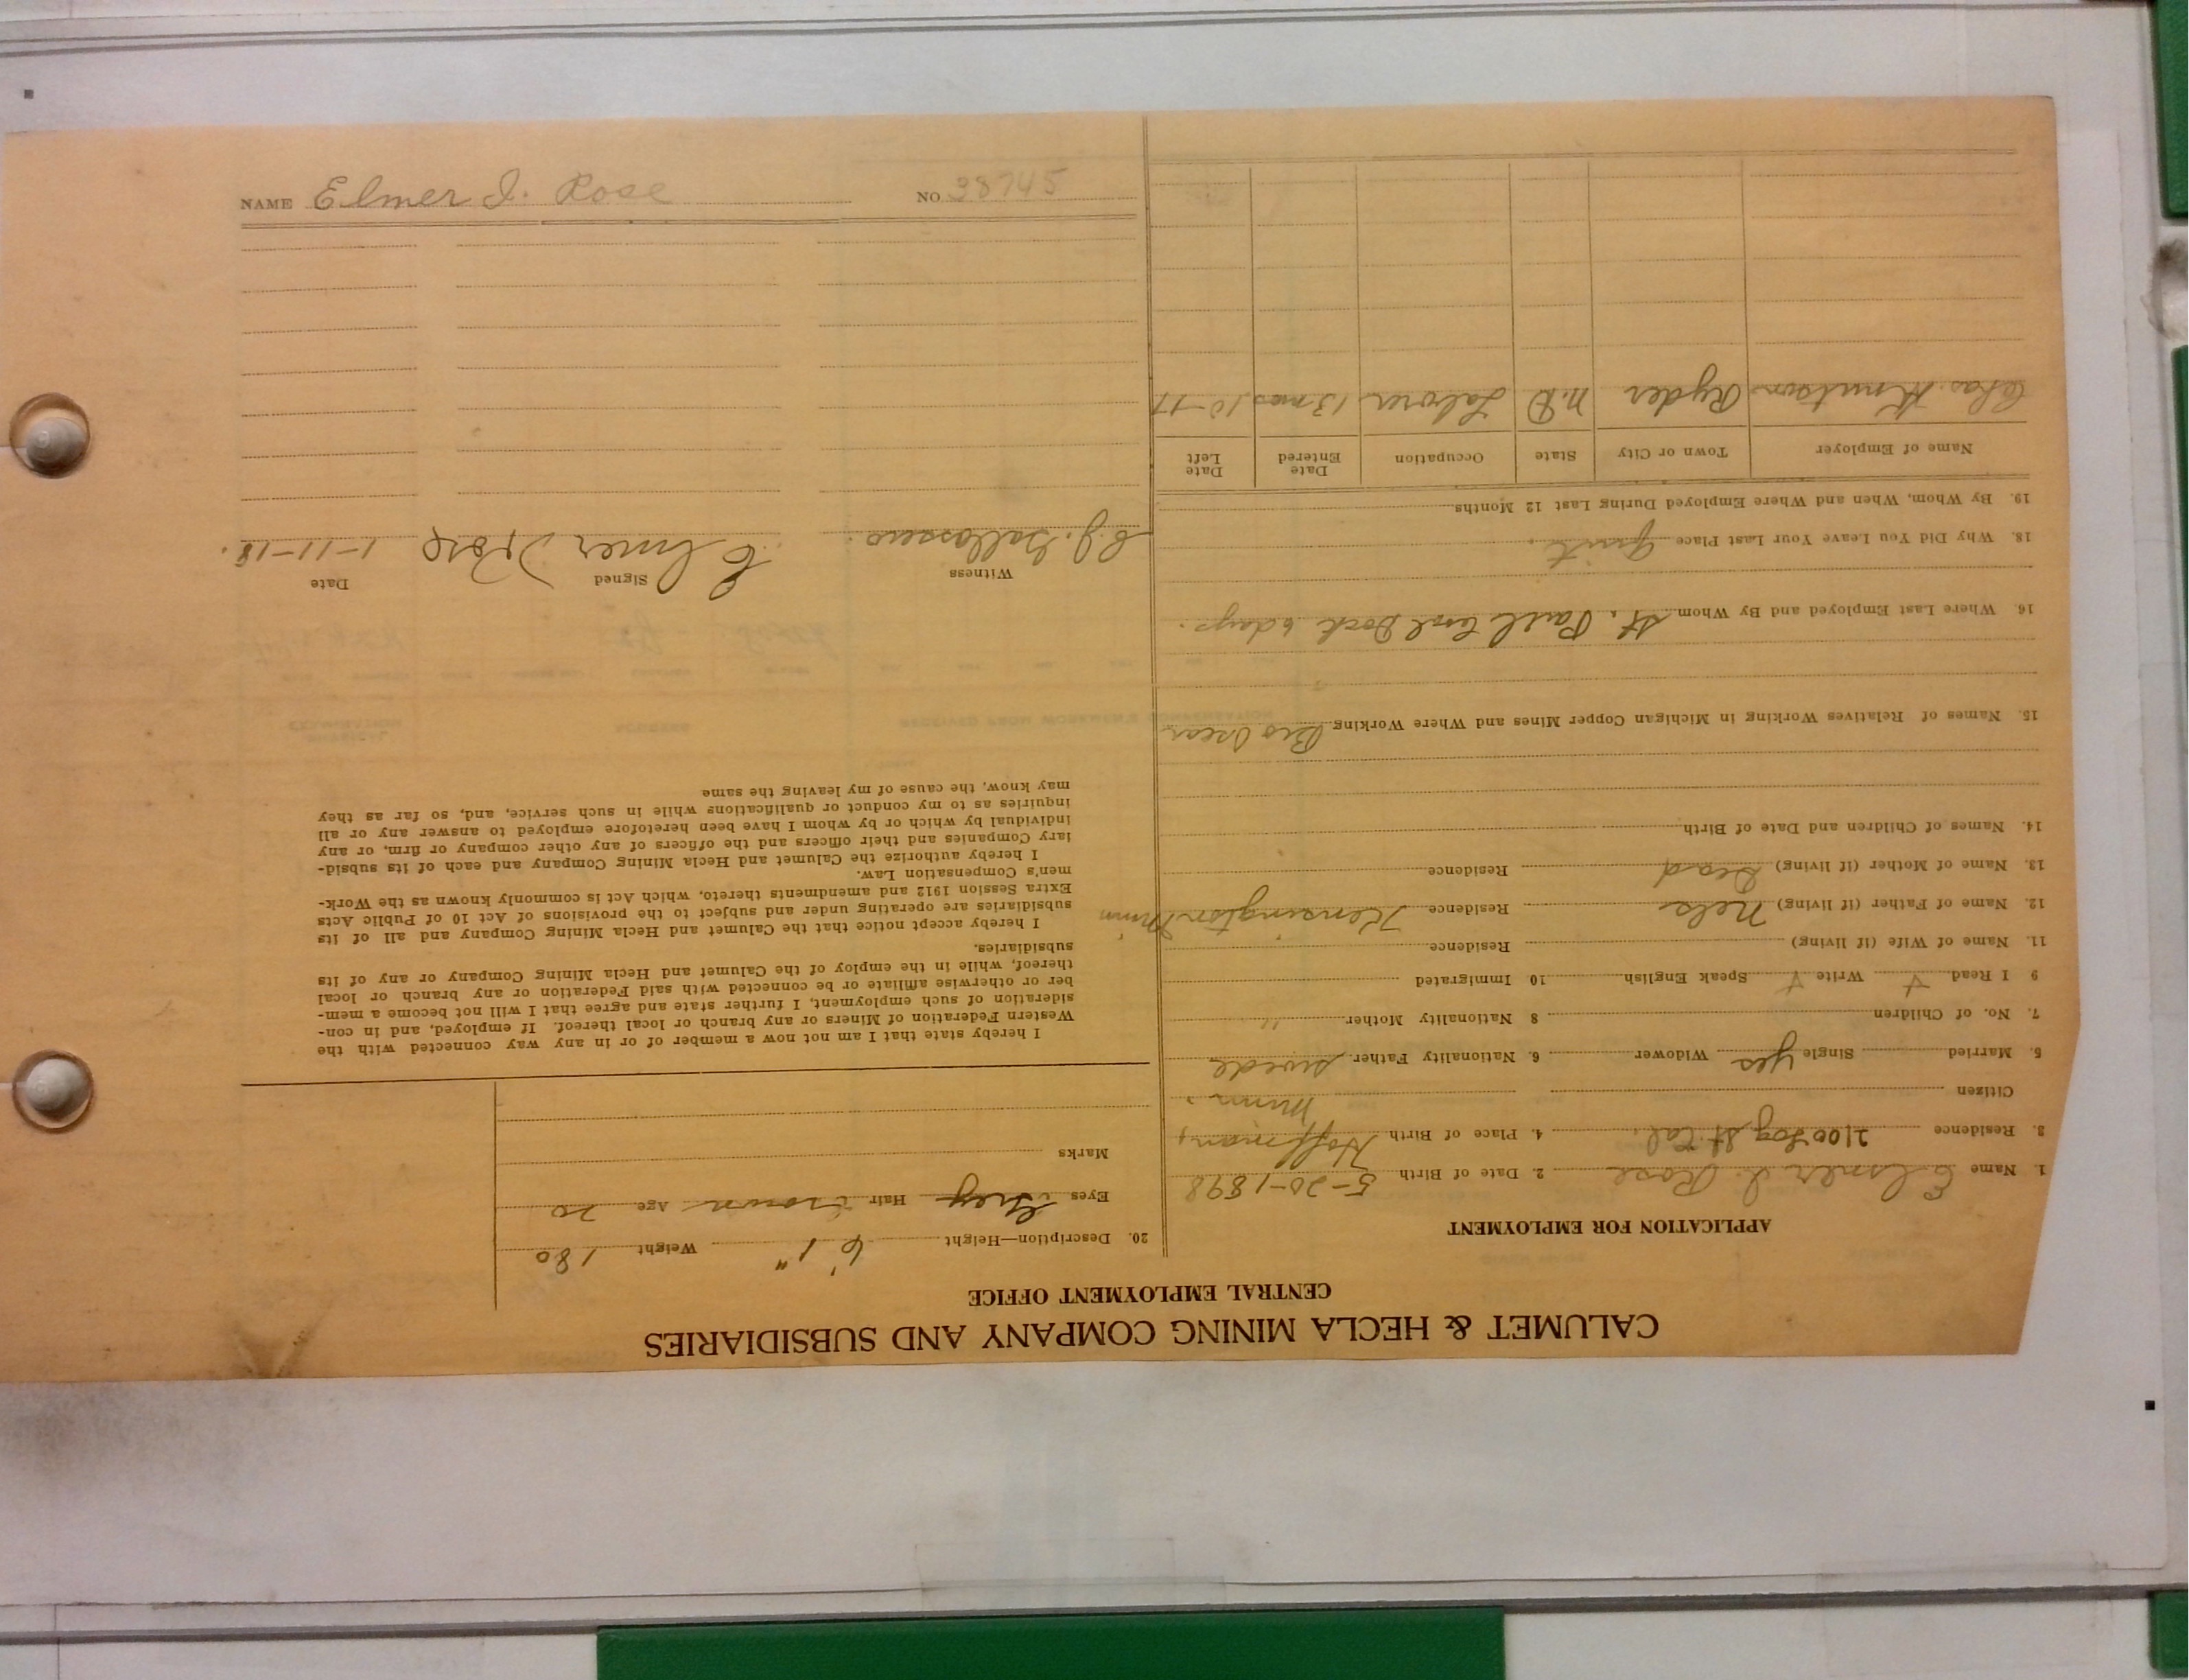 CALUMET & HECLA MINING COMPANY AND SUBSIDIARIES
CENTRAL EMPLOYMENT OFFICE
APPLICATION FOR EMPLOYMENT
1. Name Elmer I. Rose 2. Date of Birth 5-20-1898
3. Residence 2100 Log St. Cal. 4. Place of Birth Hoffman,
Minn.
Citizen
5. Married Single yes Widower 6. Nationality Father swede
7. No. of Children 8 Nationality Mother "
9 I Read Write Speak English 10 Immigrated
11. Name of Wife (if living) Residence
12. Name of Father (if living) Nels Residence Kensington Minn
13. Name of Mother (if living) Dead Residence
14. Names of Children and Date of Birth
15. Names of Relatives Working in Michigan Copper Mines and Where Working Bro Oscar
16. Where Last Employed and By Whom St. Paul Coal Dock 6 days.
18. Why Did You Leave Your Last Place quit.
19. By Whom, When and Where Employed During Last 12 Months
Name of Employer Town or City State Occupation Date Entered Date Left
Chas. Knutson Ryder N.D Laborer 13 mos 10-17
20. Description—Height 6' 1" Weight 180
Eyes Grey Hair Brown Age 20
Marks
I hereby state that I am not now a member of or in any way connected with the
Western Federation of Miners or any branch or local thereof. If employed, and in con-
sideration of such employment, I further state and agree that I will not become a mem-
ber or otherwise affiliate or be connected with said Federation or any branch or local
thereof, while in the employ of the Calumet and Hecla Mining Company or any of its
subsidiaries.
I hereby accept notice that the Calumet and Hecla Mining Company and all of its
subsidiaries are operating under and subject to the provisions of Act 10 of Public Acts
Extra Session 1912 and amendments thereto, which Act is commonly known as the Work-
men's Compensation Law.
I hereby authorize the Calumet and Hecla Mining Company and each of its subsid-
iary Companies and their officers and the officers of any other company or firm, or any
individual by which or by whom I have been heretofore employed to answer any or all
inquiries as to my conduct or qualifications while in such service, and, so far as they
may know, the cause of my leaving the same
Witness Signed Date
Elmer I Rose 1-11-18.
NAME Elmer I. Rose NO 38745